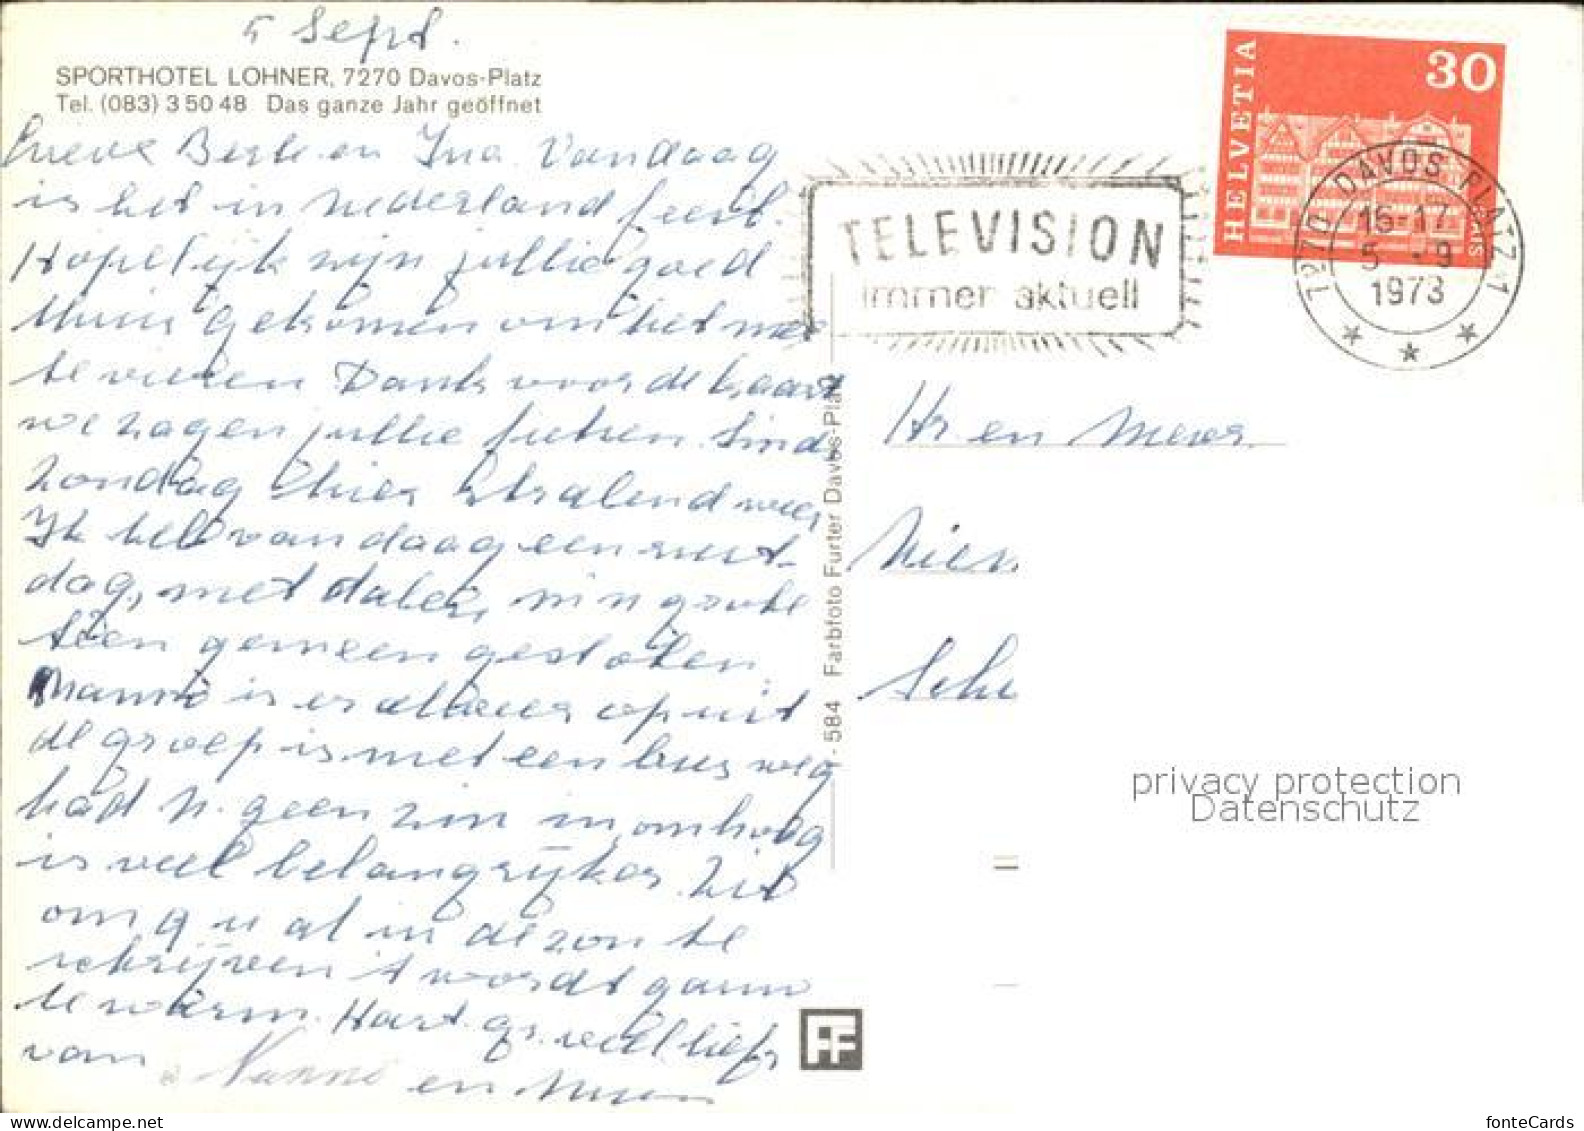 5 Sept.
SPORTHOTEL LOHNER, 7270 Davos-Platz
Tel. (083) 3 50 48 Das ganze Jahr geöffnet
Lieve Bert en Ina. Vandaag
is het in nederland feest.
Hopelijk zijn jullie goed
thuis gekomen om het mee
te vieren Dank voor de kaart
we zagen jullie fietsen. Sinds
zondag hier stralend weer
Ik heb vandaag een rust-
dag, met dalen m'n grote
teen gemeen gestoten.
Nanno is er alweer op uit
de groep is met een bus weg
had N. geen zin in, omhoog
is veel belangrijker. Zit
om 9 u al in de zon te
schrijven 't wordt gauw
te warm. Hart. gr. veel liefs
van Nanno en
HELVETIA
30
7270 DAVOS PLATZ 1
16-17
5 - 9
1973
TELEVISION
immer aktuell
Hr en Mevr.
584 Farbfoto Furter Davos-Platz
privacy protection
Datenschutz
FF
fonteCards